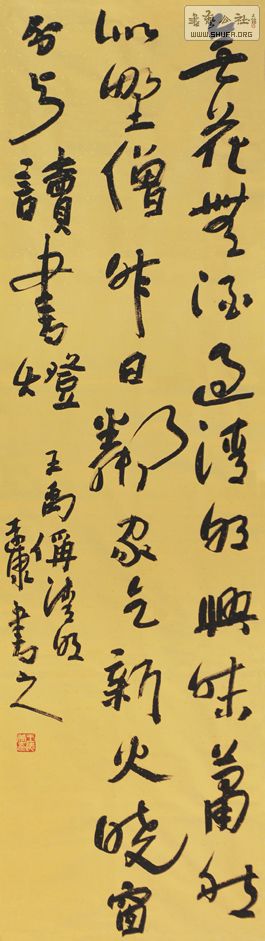 書藝公社
WWW.SHUFA.ORG
无花無酒過清明興味蕭然
似野僧昨日鄰家乞新火曉窗
分与讀書燈
王禹偁清明
康書之